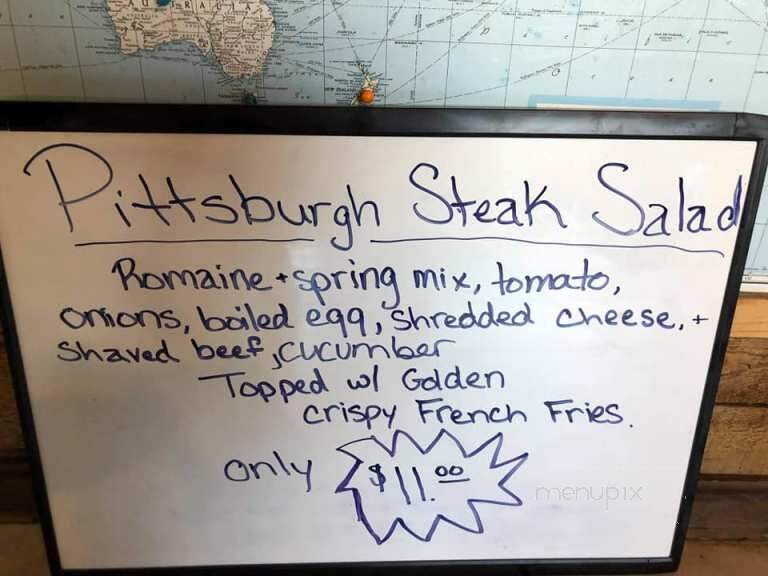 AUSTRALIA
NEW ZEALAND
Pittsburgh Steak Salad
Romaine + spring mix, tomato,
onions, boiled egg, shredded cheese, +
shaved beef, cucumber
Topped w/ Golden
crispy French Fries.
only $11.00
menupix